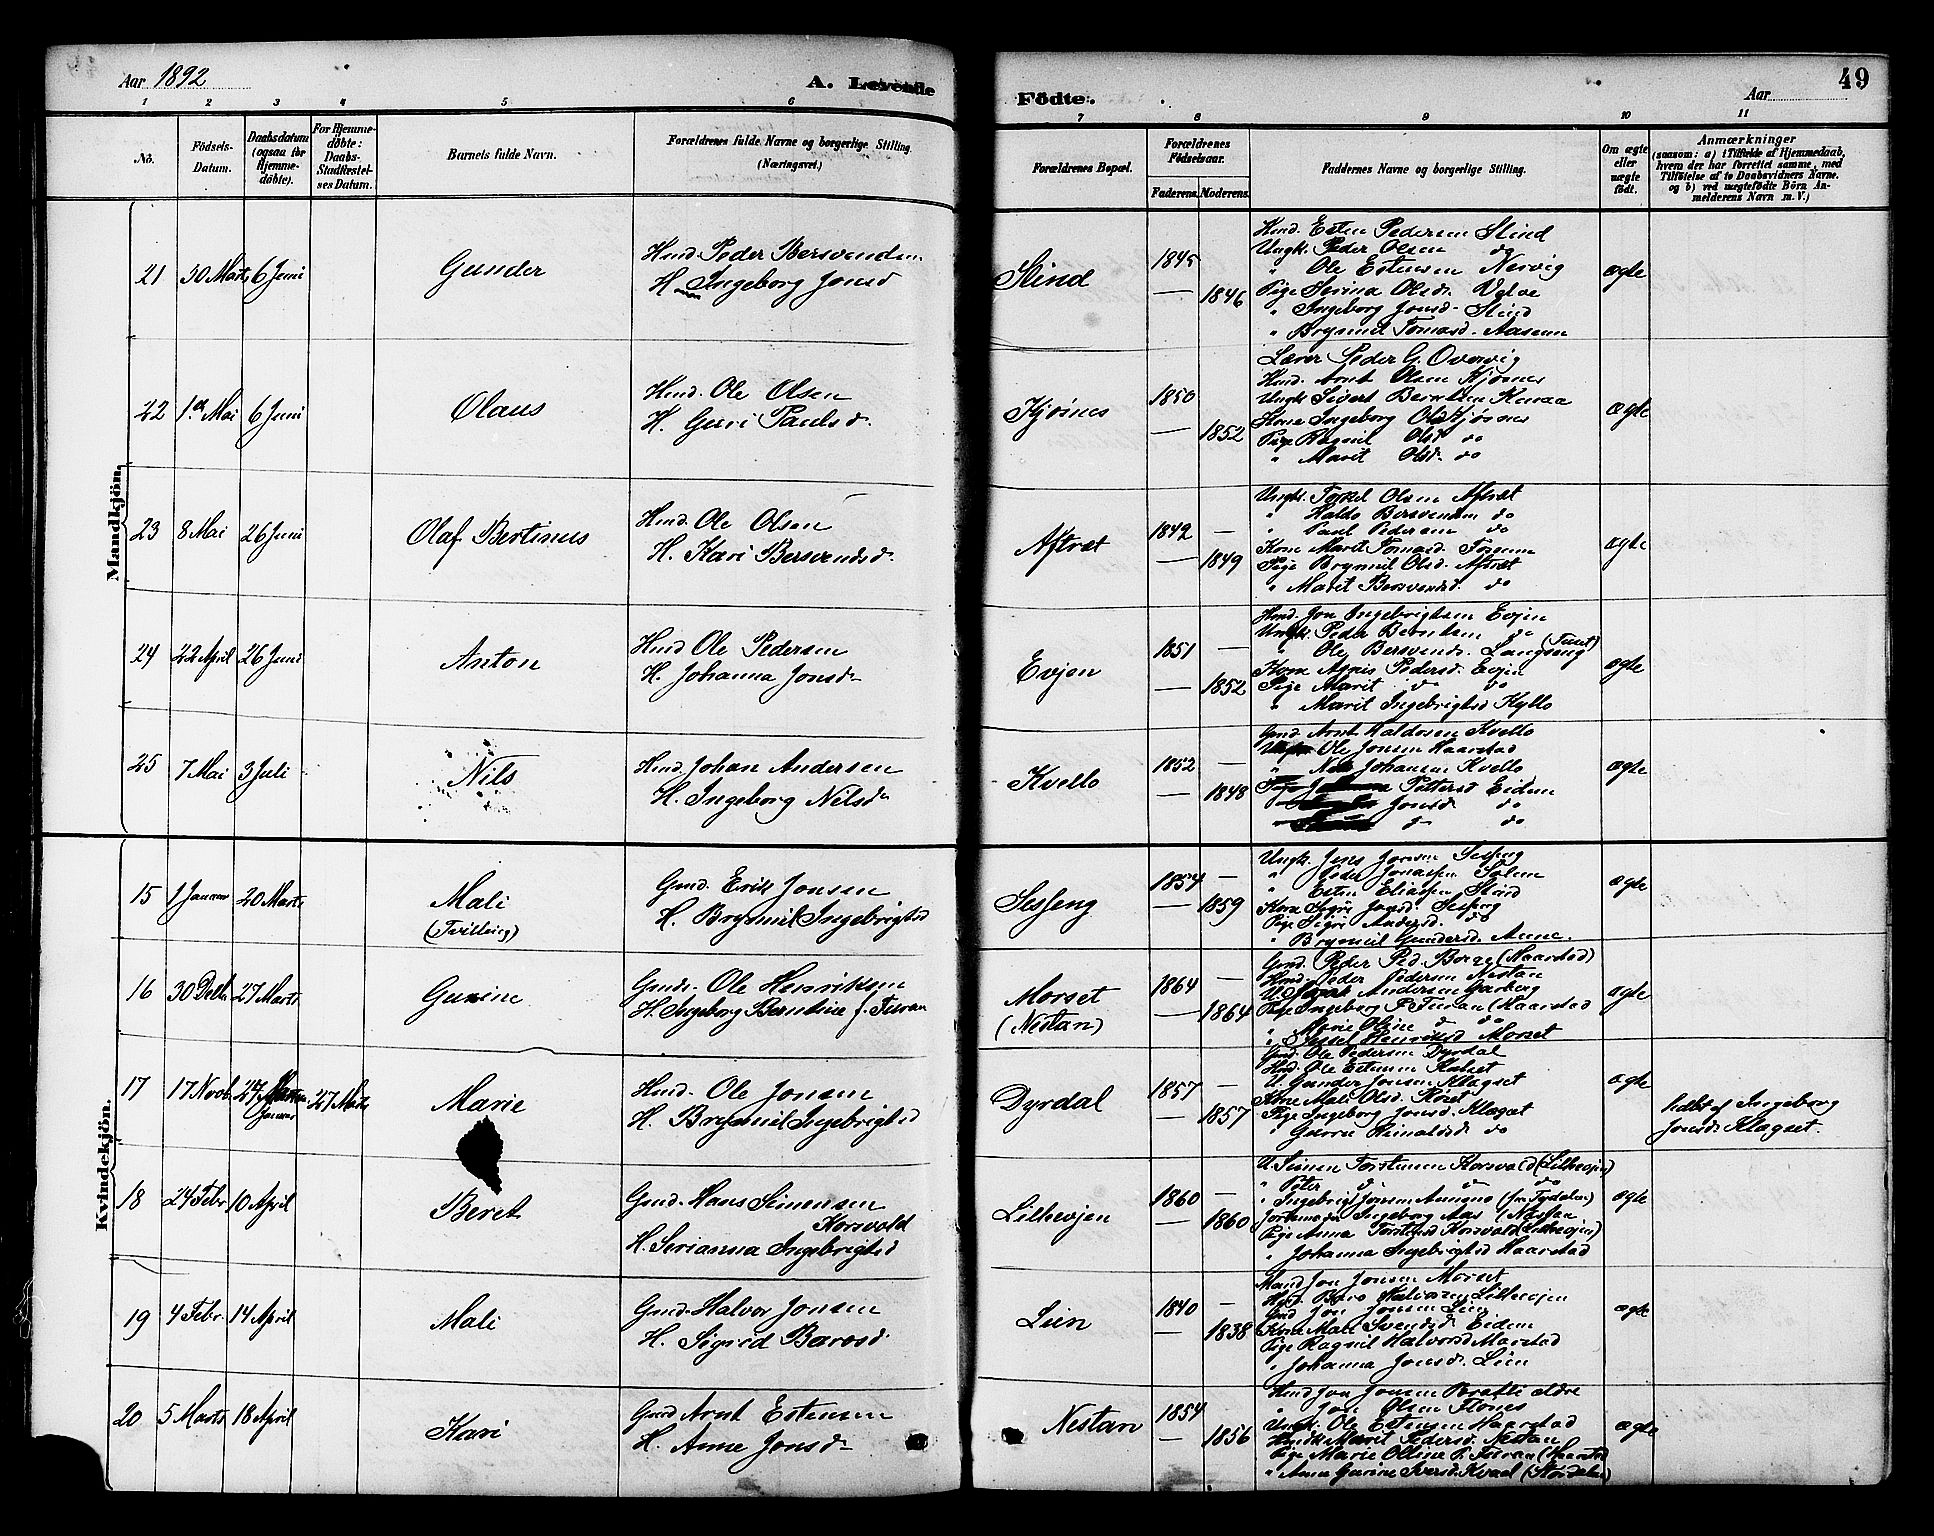 Aar 1892
A. Levende
Födte.
Aar
49
1 2 3 4 5 6 7 8 9 10 11
No.
Födsels-Datum.
Daabsdatum (ogsaa for Hjemme-døbte).
For Hjemme-døbte: Daabs-Stadfæstel-ses Datum.
Barnets fulde Navn.
Forældrenes fulde Navne og borgerlige Stilling. (Næringsvei.)
Forældrenes Bopæl.
Forældrenes Fødselsaar.
Faderens. Moderens.
Faddernes Navne og borgerlige Stilling.
Om ægte eller uægte født.
Anmærkninger
(saasom: a) i Tilfælde af Hjemmedaab, hvem der har forrettet samme, med Tilføielse af to Daabsvidners Navne. og b) ved uægtefødte Börn An-melderens Navn m. V.)
Mandkjön.
21 30 Marts 6 Juni Gunder
Hmd. Peder Bersvendsen
H. Ingeborg Jonsd
Slind
1845 —
— 1846
Hmd. Esten Pedersen Slind
Ungk. Peder Olsen do
" Ole Estensen Nervig
Pige Serina Olsd. Velve
" Ingeborg Jonsd. Slind
" Brynnil Tomasd. Aasenn
ægte
22 1ste Mai 6 Juni Olaus
Hmd. Ole Olsen
H. Guri Paulsd.
Kjösnes
1850
— 1852
Lærer Peder G. Overvig
Hmd. Arnt Olsen Kjösnes
Ungk. Sivert Berntsen
Kone Ingeborg Olsd Kjösnes
Pige Ragnil Olsd do
" Marit Olsd. do
ægte
23 8 Mai 26 Juni Olaf Bertinus
Hmd. Ole Olsen
H. Kari Bersvendsd.
Aftræt
1842 —
— 1849
Ungk. Torkel Olsen Aftræt
" Haldo Bersvendsen do
" Paul Pedersen do
Kone Marit Tomasd.
Pige Brynnil Olsd. Aftræt
" Marit Bersvendsd. do
ægte
24 22 April 26 Juni Anton
Hmd Ole Pedersen
H. Johanna Jonsd
Evjen
1851 —
— 1852
Hmd. Jon Ingebrigtsen Evjen
Ungk. Peder Berntsen do
" Ole Bersvends. Langseng (Tuset)
Kone Agnis Pedersd. Evjen
Pige Marit do do
" Marit Ingebrigtsd Kyllo
ægte
25 7 Mai 3 Juli Nils
Hmd. Johan Andersen
H. Ingeborg Nilsd
Kvello
1852 —
— 1848
Gmd. Arnt Haldosen Kvello
Ole Jonsen Haarstad
" Nils Johansen Kvello
Pige Pettersd Eidem
Jonsd do
do do
ægte
Kvindekjön.
15 1 Januar 20 Marts Mali
(Tvilling)
Gmd. Erik Jonsen
H. Brynnil Ingebrigtsd
Sesseng
1854 —
— 1859
Ungk. Jens Jonsen Sesseng
" Peder Jonassen Solem
" Esten Eliassen Slind
Kone Jonsd. Sesseng
Pige Sigri Andersd. do
" Brynnil Gundersd. Aune.
ægte
16 30 Decbr 27 Marts Gurine
Gmd. Ole Henriksen
H. Ingeborg Berntine f. Furan
Morset
(Nestan)
1864 —
— 1864
Gmd. Peder Ped. Borge (Haarstad)
Hmd. Peder Pedersen Nestan
U. Andersen Garberg
Pige Ingeborg P. Furan (Haarstad
" Marie Oline do do
" Sissel Henriksd Morset
ægte
17 17 Novb. 27 Januar 27 Marts Marie
Hmd. Ole Jonsen
H. Brynnil Ingebrigtsd
Dyrdal
1857 —
— 1857
Gmd. Ole Pedersen Dyrdal
Hmd. Ole Estensen
U. Gunder Jonsen Klagset
Kone Mali Olsd.
Pige Ingeborg Jonsd. Klagset
" do
ægte
hdbt af Ingeborg
Jonsd. Klagset.
18 24 Febr 10 April Beret
Gmd. Hans Simonsen
Korsvold
H. Serianna Ingebrigtsd
Lillevjen
1860 —
— 1860
U. Simen Torstensen Korsvold (Lillevjen)
" Peter do do
" Ingebrigt Jonsen (fra Tydalen)
Jordemoder Ingeborg Aas (Nestan
Pige Anna Torstensd Korsvold (Lillevjen)
" Johanna Ingebrigtsd Haarstad
ægte
19 4 Febr. 14 April Mali
Gmd. Halvor Jonsen
H. Sigrid BaroSd
Lien
1840 —
— 1838
Jon Jonsen Morset
Baro Halvorsen Lillevjen
Gmd Jon Jonsen Lien
Kone Mali Svendsd. Eidem
Pige Ragnil Halvorsd Haarstad
" Johanna Jonsd. Lien
ægte
20 5 Marts 18 April Kari
Gmd Arnt Estensen
H. Anne Jonsd
Nestan
1854
— 1856
Hmd Jon Jonsen ældre
" Jon Olsen Flönes
Ungk. Ole Estensen Haarstad
Marit Pedersd. Nestan
Pige Marie Oline P. Furan (Haarstad
" Anne Gurine Iversd. Kvaal (Stordalen)
ægte